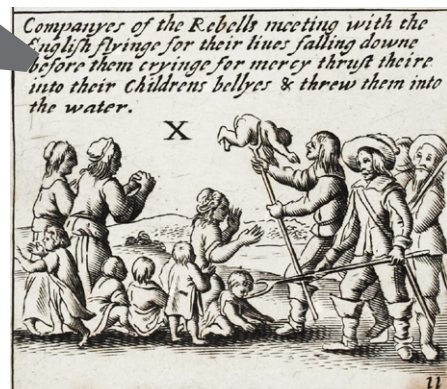 Companyes of the Rebells meeting with the
English flyinge for their liues falling downe
before them cryinge for mercy thrust theire
into their Childrens bellyes & threw them into
the water.
X